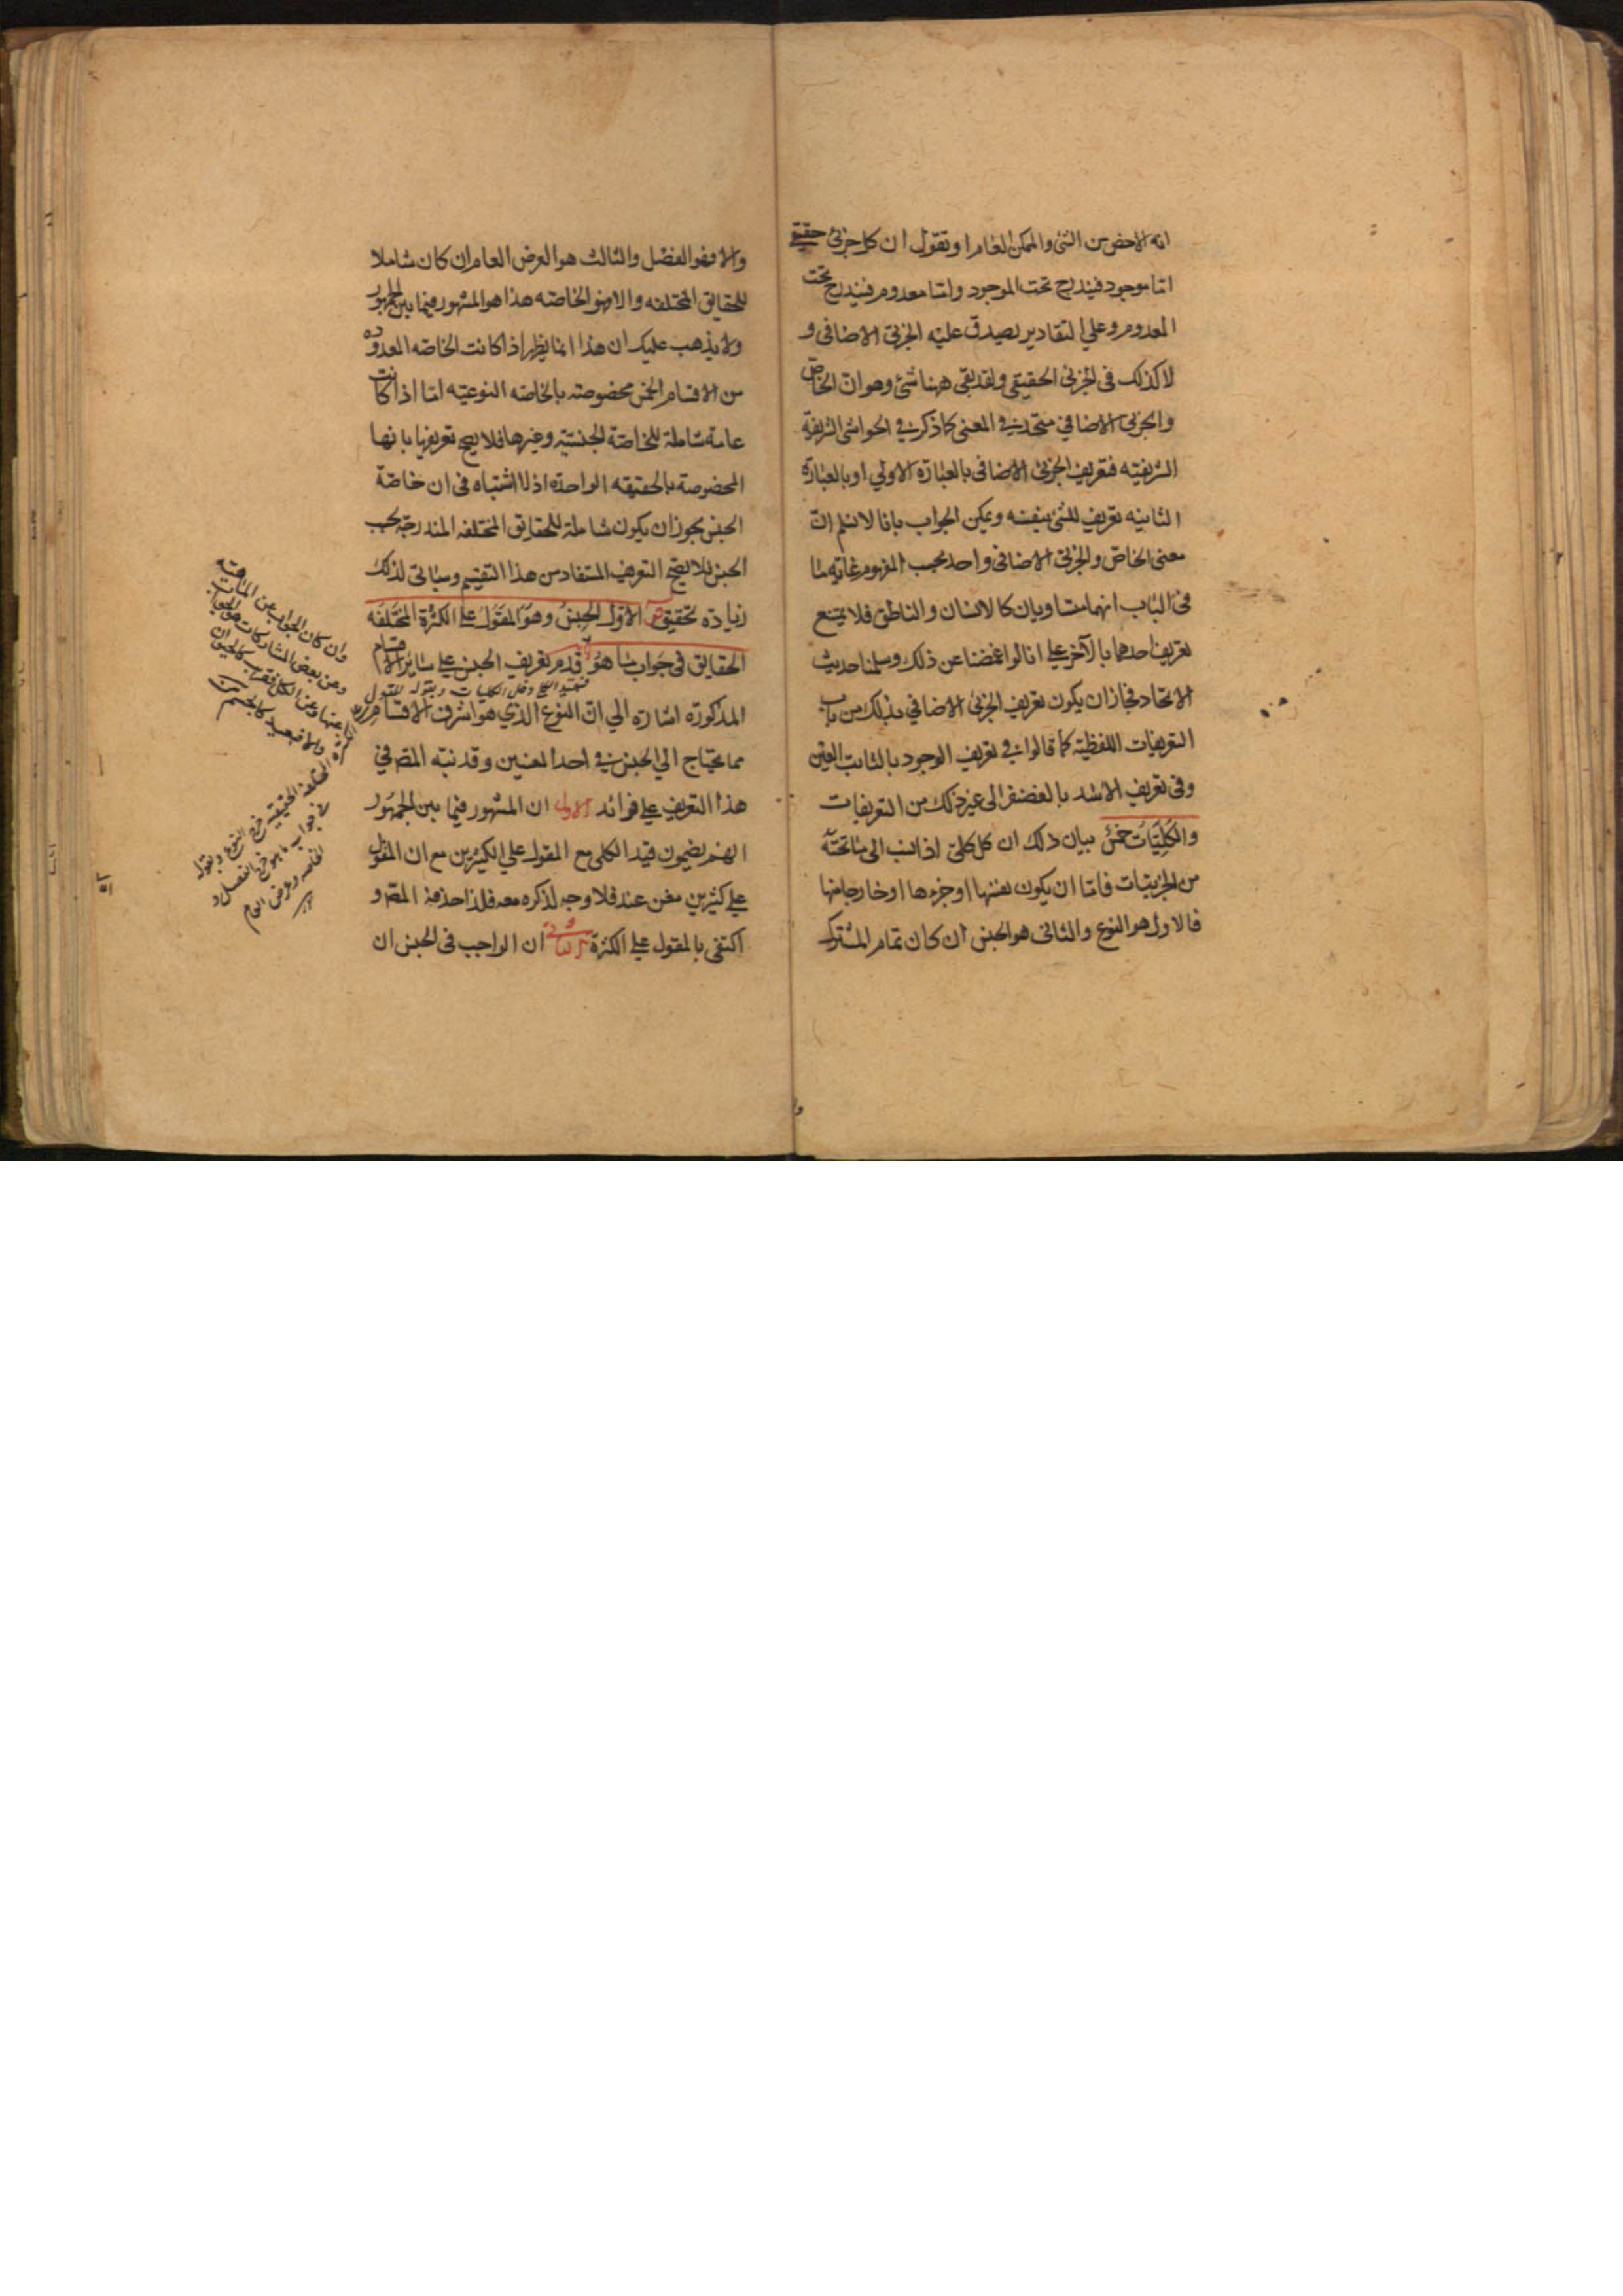 انه الاخص من الشئ والممكن العام او تقول ان كل جزئ حقيقي
اما موجود فيندرج تحت الموجود واما معدوم فيندرج تحت
المعدوم وعلي التقادير يصدق عليه الجزئي الاضافي و
لا كذلك في الجزئ الحقيقي ولقد بقي ههنا شئ وهو ان الخاص
والجزئ الاضافي متحد في المعنى كما ذكر في الحواشي الشريفة
الشريفيه فتعريف الجزئ الاضافي بالعبارة الاولي او بالعبارة
الثانيه تعريف للشئ بنفسه ويمكن الجواب بانا لا نسلم ان
معنى الخاص والجزئي الاضافي واحد بحسب المفهوم غاية ما
في الباب انهما متساويان كالانسان والناطق فلا يمتنع
تعريف احدهما بالآخر علي انا لو اغمضنا عن ذلك وسلمنا حديث
الاتحاد فجاز ان يكون تعريف الجزئ الاضافي بذلك من باب
التعريفات اللفظية كما قالوا في تعريف الوجود بالثابت العين
وفي تعريف الاسد بالغضنفر الى غير ذلك من التعريفات
والكُلِيَّاتُ خمسٌ بيان ذلك ان كل كلي اذا نسب الى ما تحته
من الجزئيات فاما ان يكون نفسها او جزءها او خارجا منها
فالاول هو النوع والثاني هو الجنس ان كان تمام المشترك
والا فهو الفصل والثالث هو العرض العام ان كان شاملا
للحقايق المختلفه والا فهو الخاصه هذا هو المشهور فيما بين الجمهور
ولا يذهب عليك ان هذا انما يظهر اذا كانت الخاصه المعدوده
من الاقسام الخمس مخصوصة بالخاصه النوعيه اما اذا كانت
عامة شاملة للخاصة الجنسية وغيرها فلا يصح تعريفها بانها
المخصوصة بالحقيقه الواحدة اذ لا اشتباه في ان خاصة
الجنس يجوز ان يكون شاملة للحقايق المختلفه المندرجة تحت
الجنس فلا يصح التعريف المستفاد من هذا التقسيم وسياتي لذلك
زيادة تحقيق الاول الجنس وهو المقول علي الكثرة المختلفه
الحقايق في جواب ما هو قدم تعريف الجنس علي ساير الاقسام
المذكورة اشارة الي ان النوع الذي هو اشرف الاقسام
مما يحتاج الي الجنس في احد المعنيين وقد نبه المص في
هذا التعريف علي فوائد الاولى ان المشهور فيما بين الجمهور
انهم يضيمون قيد الكلي مع المقول علي الكثيرين مع ان المقول
علي كثيرين مغن عنه فلا وجه لذكره معه فلذا حذفه المص و
اكتفي بالمقول علي الكثرة الثاني ان الواجب في الجنس ان
وان كان الجواب عن الماهية
وعن بعض المشاركات هو الجواب
عنها وعن الكل فقريب كالحيوان
والا فبعيد كالجسم